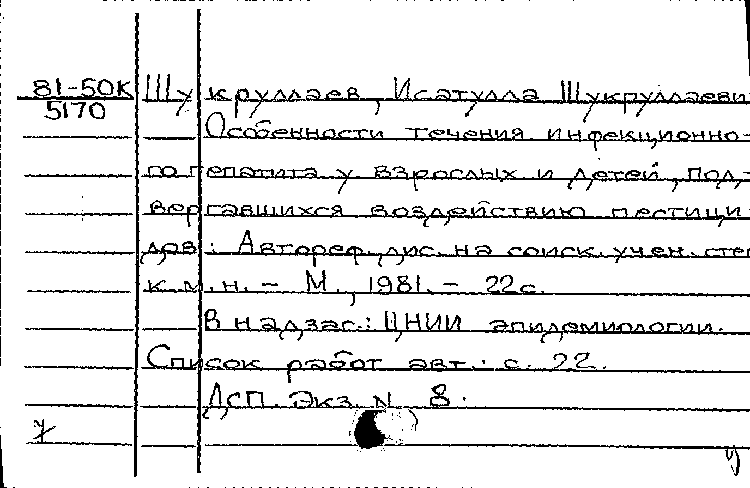 81-50К Шукруллаев, Исатулла Шукруллаеви
5170
Особенности течения инфекционно-
го гепатита у взрослых и детей, под-
вергавшихся воздействию пестици-
дов: Автореф. дис. на соиск. учен. степ
к.м.н. - М., 1981. - 22 с.
В надзаг.: ЦНИИ эпидемиологии.
Список работ авт.: с. 22.
ДСП. Экз. N 8.